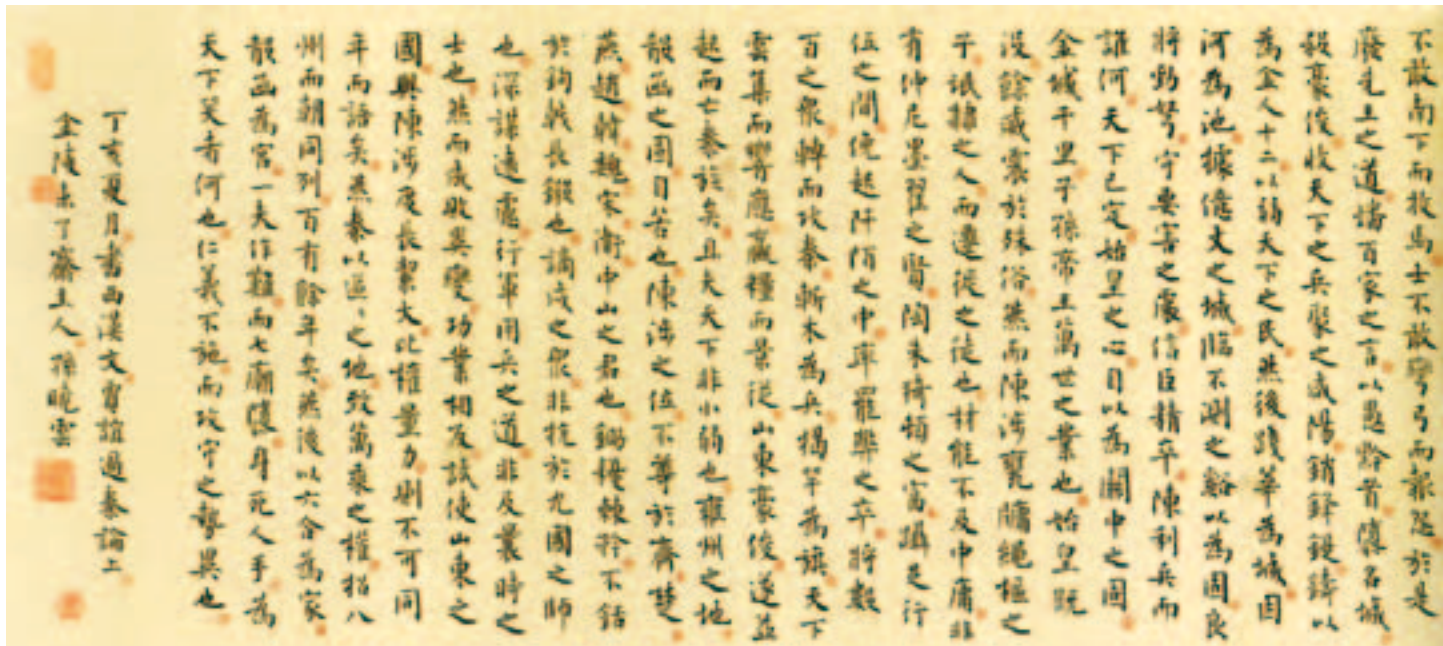 不敢南下而牧馬士不敢彎弓而報怨於是
廢先王之道燔百家之言以愚黔首隳名城
殺豪俊收天下之兵聚之咸陽銷鋒鍉鑄以
為金人十二以弱天下之民然後踐華為城因
河為池據億丈之城臨不測之谿以為固良
將勁弩守要害之處信臣精卒陳利兵而
誰何天下已定始皇之心自以為關中之固
金城千里子孫帝王萬世之業也始皇既
沒餘威震於殊俗然而陳涉甕牖繩樞之
子氓隸之人而遷徙之徒也材能不及中庸非
有仲尼墨翟之賢陶朱猗頓之富躡足行
伍之間俛起阡陌之中率罷弊之卒將數
百之眾轉而攻秦斬木為兵揭竿為旗天下
雲集而響應贏糧而景從山東豪俊遂並
起而亡秦族矣且夫天下非小弱也雍州之地
殽函之固自若也陳涉之位不尊於齊楚
燕趙韓魏宋衛中山之君也鋤櫌棘矜不銛
於鉤戟長鎩也謫戍之眾非抗於九國之師
也深謀遠慮行軍用兵之道非及曩時之
士也然而成敗異變功業相反試使山東之
國與陳涉度長絜大比權量力則不可同
年而語矣然秦以區々之地致萬乘之權招八
州而朝同列百有餘年矣然後以六合為家
殽函為宮一夫作難而七廟隳身死人手為
天下笑者何也仁義不施而攻守之勢異也
丁亥夏月書西漢文賈誼過秦論上
金陵未了齋主人孫曉雲